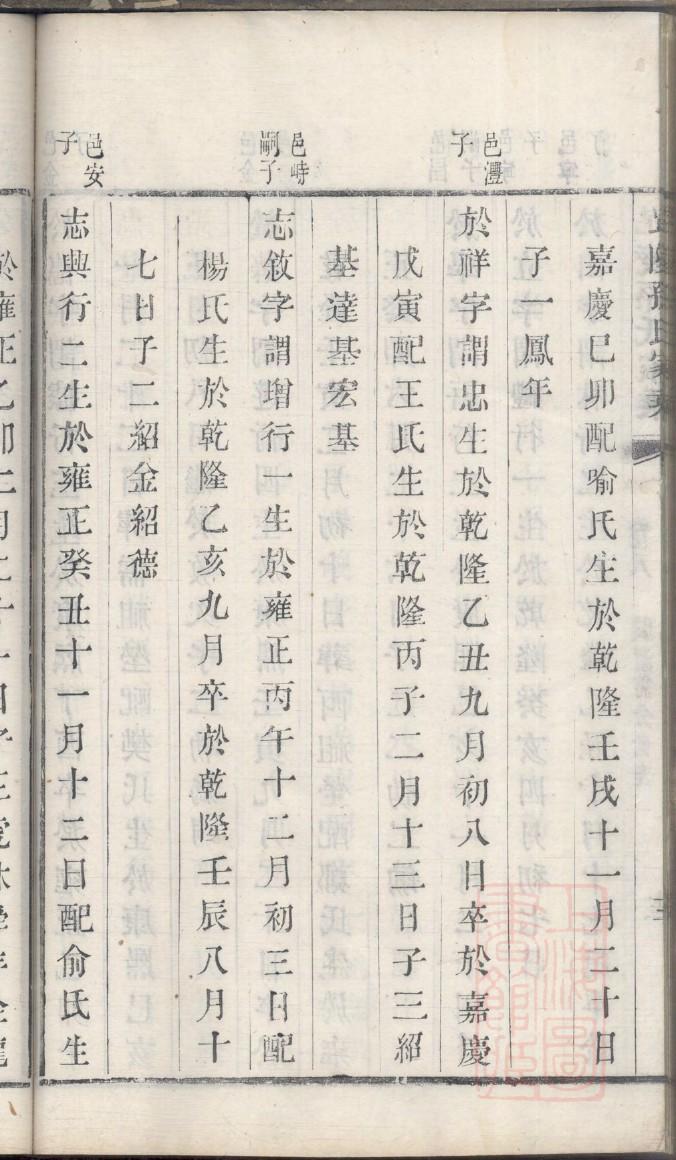 嘉慶己卯配喻氏生於乾隆壬戌十一月二十日
子一鳳年
邑灃子
於祥字謂忠生於乾隆乙丑九月初八日卒於嘉慶
戊寅配王氏生於乾隆丙子二月十三日子三紹
基達基宏基
邑峙嗣子
志敘字謂增行一生於雍正丙午十二月初三日配
楊氏生於乾隆乙亥九月卒於乾隆壬辰八月十
七日子二紹金紹德
邑安子
志興行二生於雍正癸丑十一月十二日配俞氏生